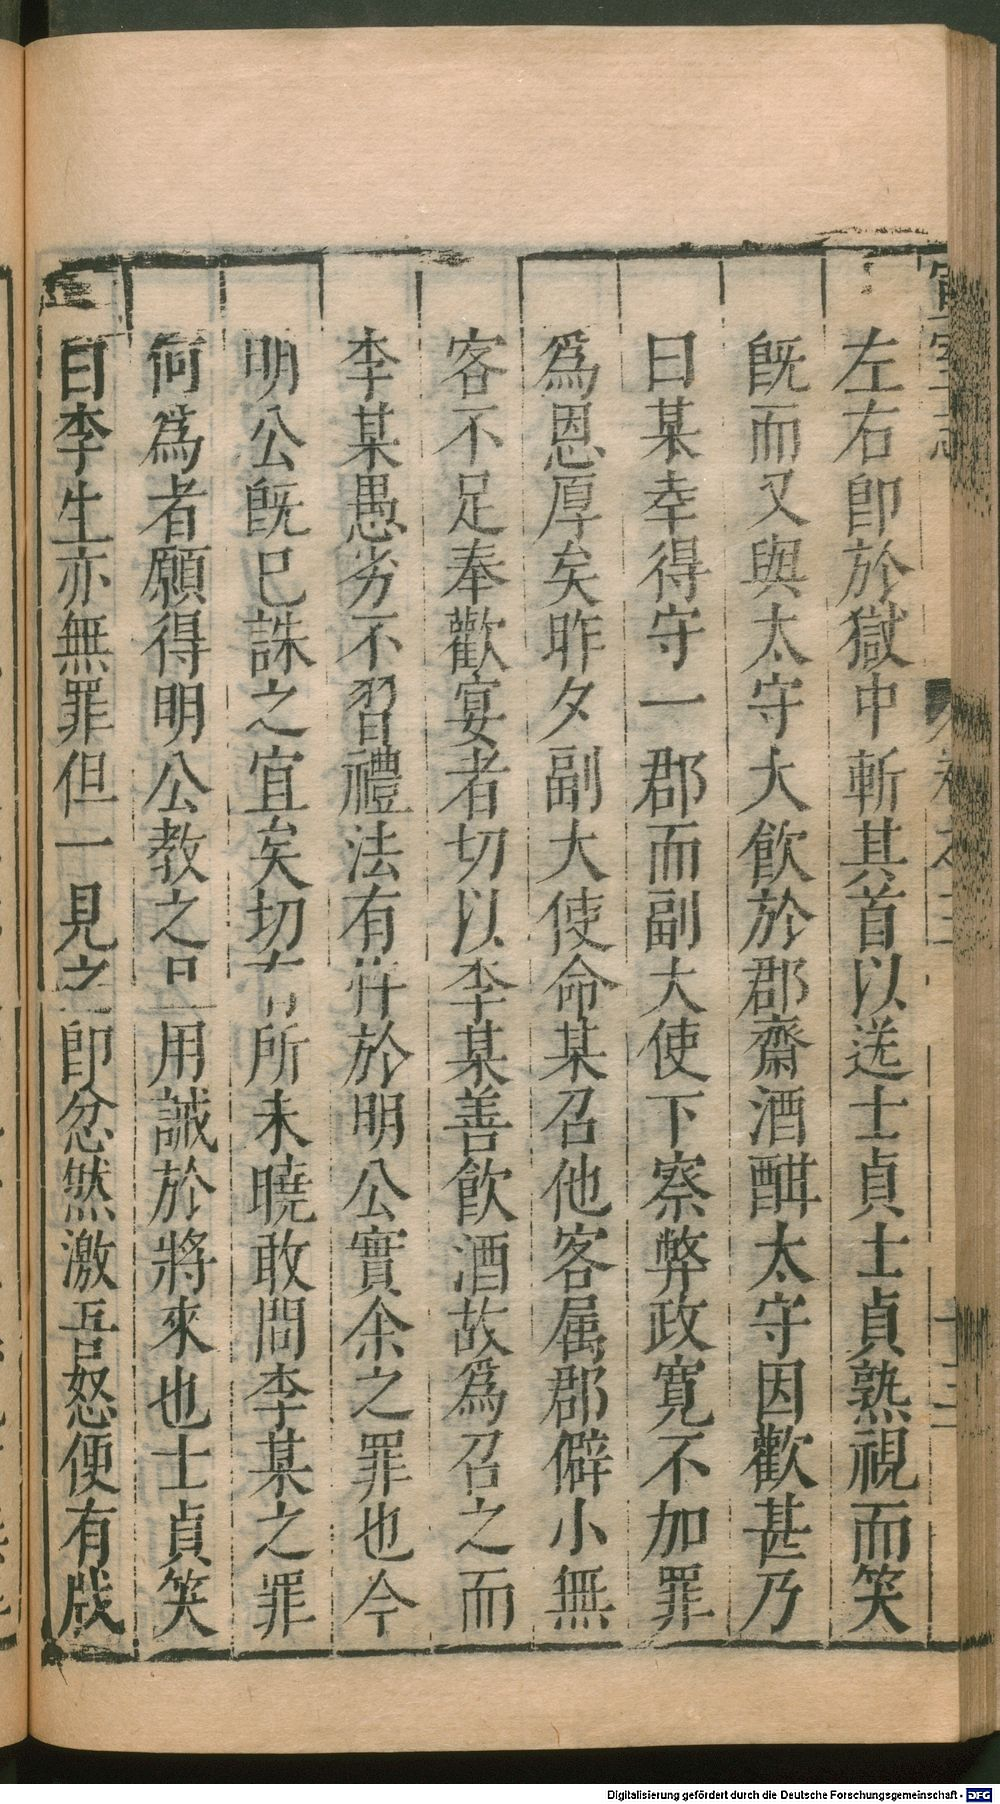 左右卽於獄中斬其首以送士貞士貞熟視而笑
旣而又與太守大飲於郡齋酒酣太守因歡甚乃
曰某幸得守一郡而副大使下察弊政寛不加罪
爲恩厚矣昨夕副大使命某召他客属郡僻小無
客不足奉歡宴者切以李某善飲酒故爲召之而
李某愚劣不習禮法有忤於明公實余之罪也今
明公旣已誅之宜矣切有所未曉敢問李某之罪
何爲者願得明公教之且用誡於將來也士貞笑
曰李生亦無罪但一見之卽忿然激吾怒便有戕
Digitalisierung gefördert durch die Deutsche Forschungsgemeinschaft - DFG